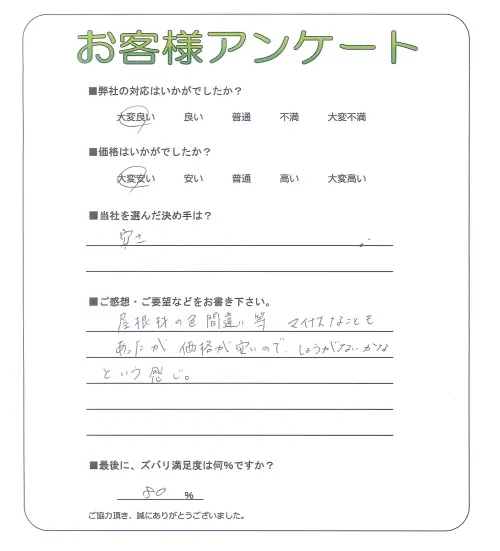 お客様アンケート
■弊社の対応はいかがでしたか？
大変良い 良い 普通 不満 大変不満
■価格はいかがでしたか？
大変安い 安い 普通 高い 大変高い
■当社を選んだ決め手は？
安さ
■ご感想・ご要望などをお書き下さい。
屋根材の色間違い等 マイナスなことも
あったが 価格が安いので、しょうがないかな
という感じ。
■最後に、ズバリ満足度は何%ですか？
80 %
ご協力頂き、誠にありがとうございました。